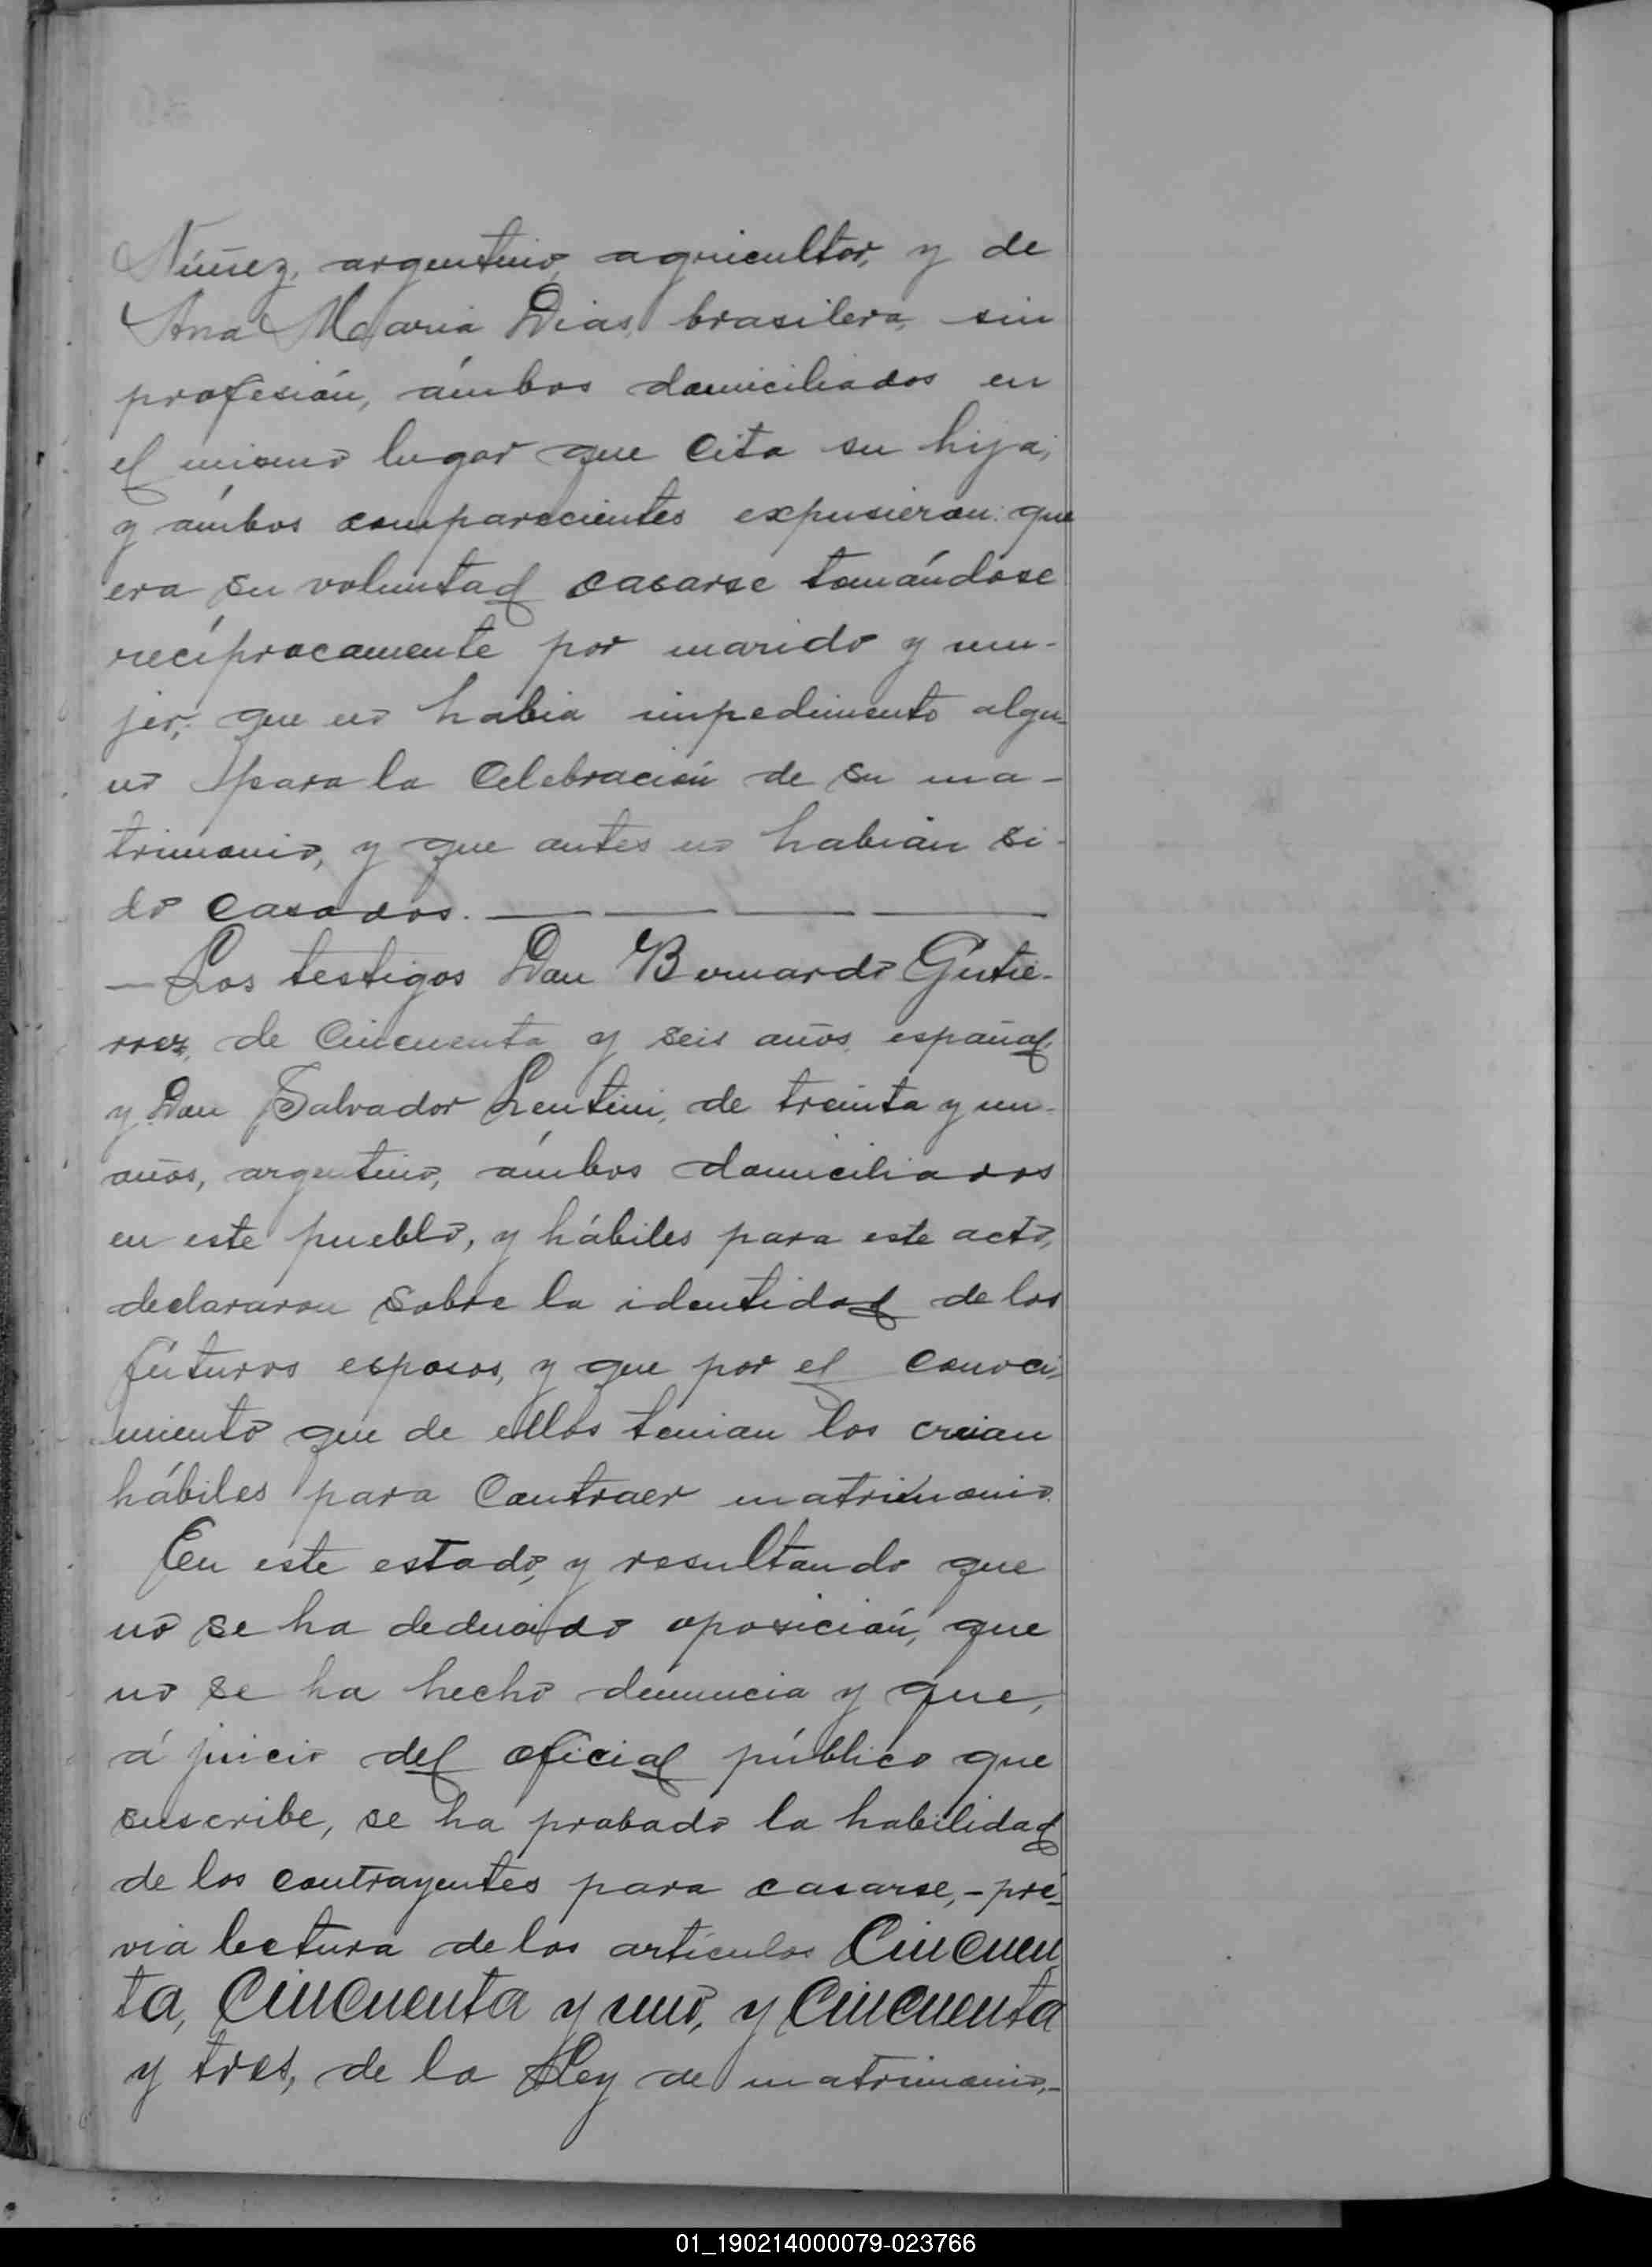 Núñez, argentino, agricultor, y de
Ana Maria Dias, brasilera, sin
profesión, ámbos domiciliados en
el mismo lugar que cita su hija;
y ámbos comparecientes expusieron: que
era su voluntad casarse tomándose
recíprocamente por marido y mu-
jer; que no habia impedimento algu-
no para la celebración de su ma-
trimonio, y que antes no habian si-
do casados. — — — —
— Los testigos Don Bernardo Gutie-
rrez, de cincuenta y seis años, español,
y Don Salvador Lentini, de treinta y un
años, argentino, ámbos domiciliados
en este pueblo, y hábiles para este acto,
declararon sobre la identidad de los
futuros esposos, y que por el conoci-
miento que de ellos tenian los creian
hábiles para contraer matrimonio.
En este estado, y resultando que
no se ha deducido oposición, que
no se ha hecho denuncia y que,
á juicio del oficial público que
suscribe, se ha probado la habilidad
de los contrayentes para casarse, - pré-
via lectura de los artículos Cincuen
ta, Cincuenta y uno, y Cincuenta
y tres, de la Ley de matrimonio,-
01_190214000079-023766